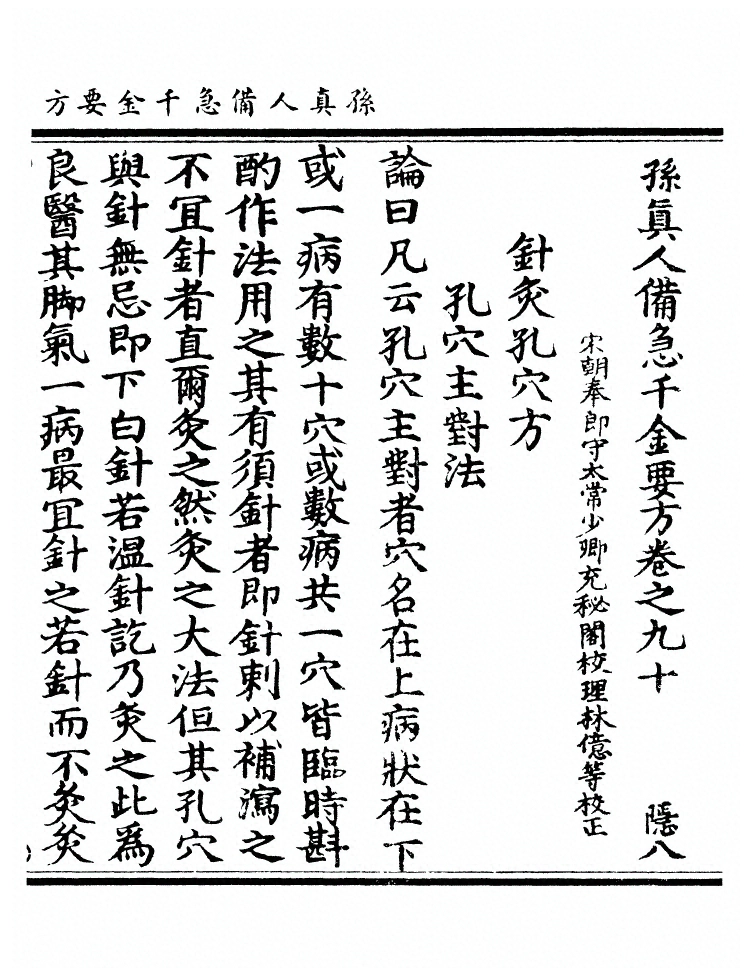 孫真人備急千金要方
孫眞人備急千金要方卷之九十　隱八
宋朝奉郎守太常少卿充秘閣校理林億等校正
針灸孔穴方
孔穴主對法
論曰凡云孔穴主對者穴名在上病狀在下
或一病有數十穴或數病共一穴皆臨時斟
酌作法用之其有須針者即針刺以補瀉之
不宜針者直爾灸之然灸之大法但其孔穴
與針無忌即下白針若温針訖乃灸之此爲
良醫其脚氣一病最宜針之若針而不灸灸